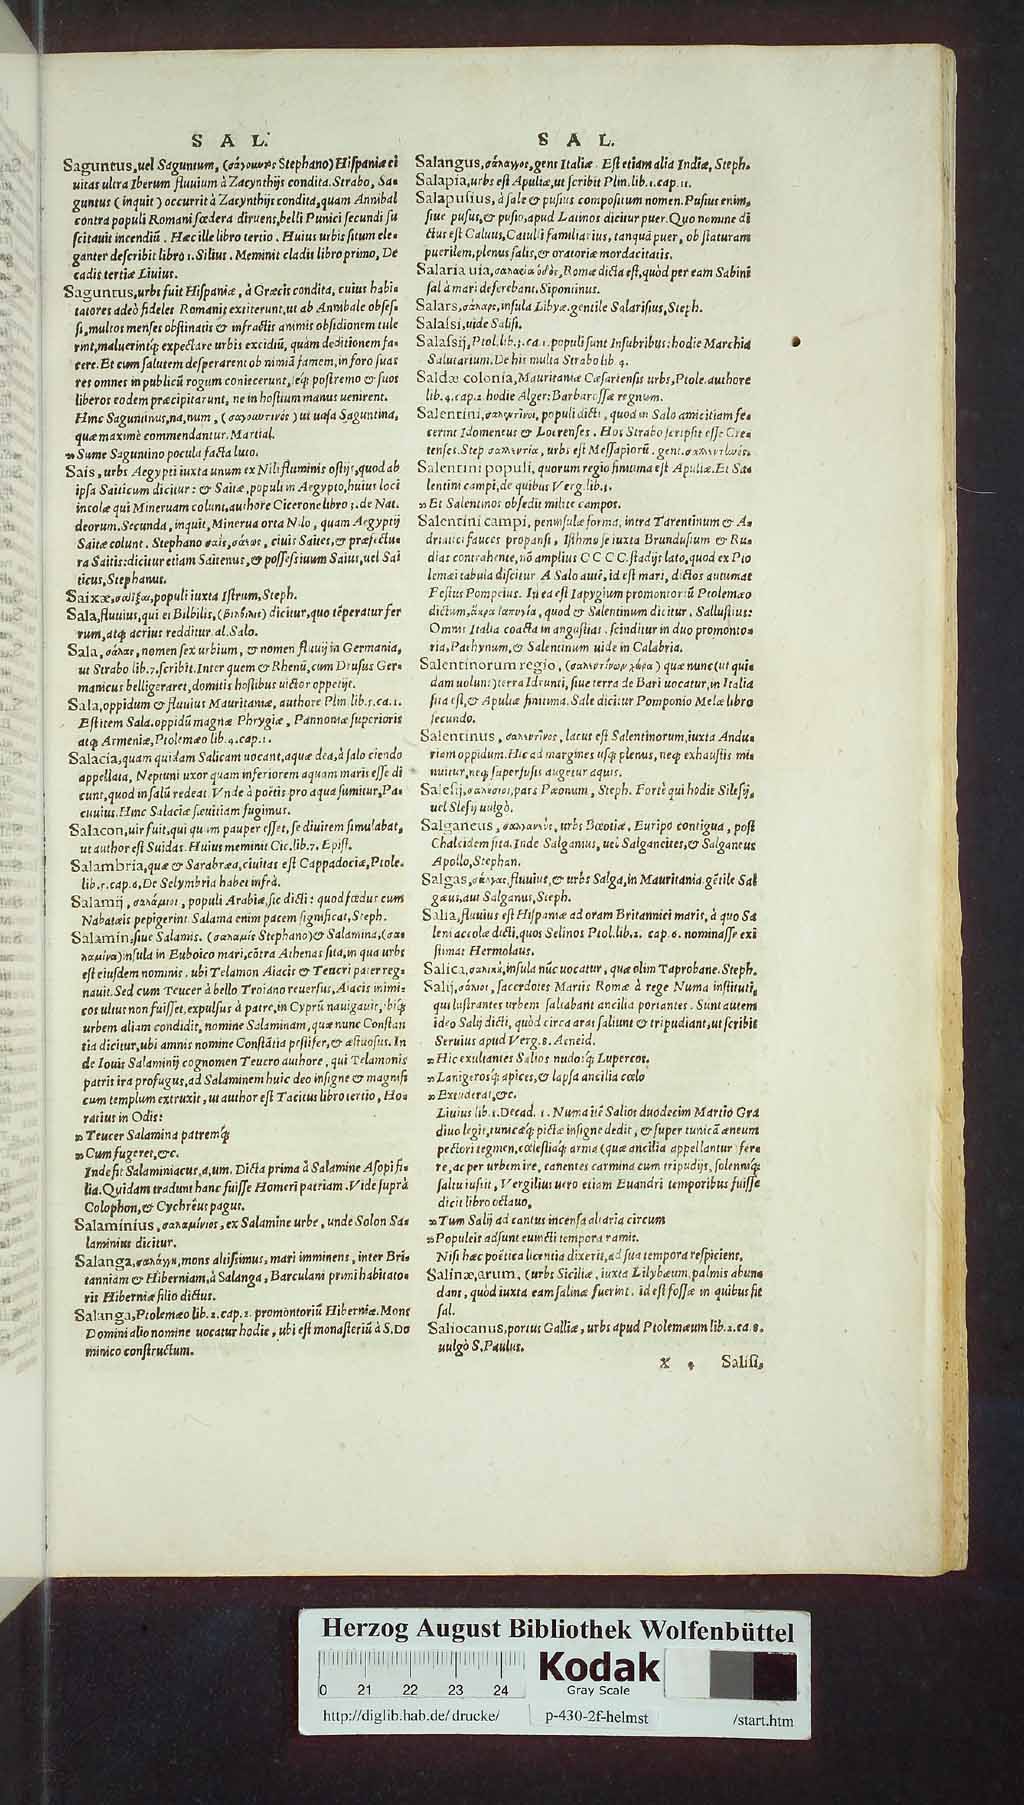 S A L.
Saguntus, uel Saguntum, (σάγουντος Stephano) Hiſpaniæ ci
uitas ultra Iberum fluuium à Zacynthijs condita. Strabo, Sa-
guntus (inquit) occurrit à Zacynthijs condita, quam Annibal
contra populi Romani fœdera diruens, belli Punici ſecundi ſu
ſcitauit incendiū. Hæc ille libro tertio. Huius urbis ſitum ele-
ganter deſcribit libro 1. Silius. Meminit cladis libro primo, De
cadis tertiæ Liuius.
Saguntus, urbs fuit Hiſpaniæ, à Græcis condita, cuius habi-
tatores adeò fideles Romanis extiterunt, ut ab Annibale obſeſ-
ſi, multos menſes obſtinatis & infractis animis obſidionem tule
rint, maluerintq́ expectare urbis excidiū, quàm deditionem fa-
cere. Et cum ſalutem deſperarent ob nimiā famem, in foro ſuas
res omnes in publicū rogum coniecerunt, ſeq́ poſtremo & ſuos
liberos eodem præcipitarunt, ne in hoſtium manus uenirent.
Hinc Saguntinus, na, num, (σαγουντινός) ut uaſa Saguntina,
quæ maximè commendantur. Martial.
Sume Saguntino pocula facta luto.
Sais, urbs Aegypti iuxta unum ex Nili fluminis oſtijs, quod ab
ipſa Saiticum dicitur: & Saitæ, populi in Aegypto, huius loci
incolæ qui Mineruam colunt, authore Cicerone libro 3. de Nat.
deorum. Secunda, inquit, Minerua orta Nilo, quam Aegyptij
Saitæ colunt. Stephano σαΐς, ciuis Saites, & præfectu-
ra Saitis: dicitur etiam Saitenus, & poſſeſſiuum Saius, uel Sai
ticus, Stephanus.
Saixæ, populi iuxta Iſtrum, Steph.
Sala, fluuius, qui ei Bilbilis, (βίλβιλις) dicitur, quo tēperatur fer
rum, atq́ acrius redditur. al. Salo.
Sala, σάλας, nomen ſex urbium, & nomen fluuij in Germania,
ut Strabo lib. 7. ſcribit. Inter quem & Rhenū, cum Druſus Ger-
manicus belligeraret, domitis hoſtibus uictor oppetijt.
Sala, oppidum & fluuius Mauritaniæ, authore Plin. lib. 5. ca. 1.
Eſt item Sala. oppidū magnæ Phrygiæ, Pannoniæ ſuperioris
atq́ Armeniæ, Ptolemæo lib. 4. cap. 1.
Salacia, quam quidam Salicam uocant, aquæ dea, à ſalo ciendo
appellata, Neptuni uxor quam inferiorem aquam maris eſſe di
cunt, quod in ſalū redeat. Vnde à poëtis pro aqua ſumitur, Pa-
cuuius. Hinc Salaciæ ſæuitiam fugimus.
Salacon, uir fuit, qui quum pauper eſſet, ſe diuitem ſimulabat,
ut author eſt Suidas. Huius meminit Cic. lib. 7. Epiſt.
Salambria, quæ & Sarabræa, ciuitas eſt Cappadociæ, Ptole.
lib. 5. cap. 6. De Selymbria habet infrà.
Salamij, σαλάμιοι, populi Arabiæ, ſic dicti: quod fœdus cum
Nabatæis pepigerint. Salama enim pacem ſignificat, Steph.
Salamin, ſiue Salamis. (σαλαμίς Stephano) & Salamina, (σα-
λαμίνα) inſula in Euboico mari, cōtra Athenas ſita, in qua urbs
eſt eiuſdem nominis. ubi Telamon Aiacis & Teucri pater reg-
nauit. Sed cum Teucer à bello Troiano reuerſus, Aiacis inimi-
cos ultus non fuiſſet, expulſus à patre, in Cyprū nauigauit, ibiq́
urbem aliam condidit, nomine Salaminam, quæ nunc Conſtan
tia dicitur, ubi amnis nomine Conſtātia peſtifer, & æſtuoſus. In
de Iouis Salaminij cognomen Teucro authore, qui Telamonis
patris ira profugus, ad Salaminem huic deo inſigne & magnifi
cum templum extruxit, ut author eſt Tacitus libro tertio, Ho-
ratius in Odis:
Teucer Salamina patremq́
Cum fugeret, &c.
Inde fit Salaminiacus, a, um. Dicta prima à Salamine Aſopi fi-
lia. Quidam tradunt hanc fuiſſe Homeri patriam. Vide ſuprà
Colophon, & Cychrëus pagus.
Salaminius, σαλαμίνιος, ex Salamine urbe, unde Solon Sa-
laminius dicitur.
Salanga, σαλάγγα, mons altiſſimus, mari imminens, inter Bri-
tanniam & Hiberniam, à Salanga, Barculani primi habitato-
ris Hiberniæ filio dictus.
Salanga, Ptolemæo lib. 2. cap. 2. promontoriū Hiberniæ. Mons
Domini alio nomine uocatur hodie, ubi eſt monaſteriū à S. Do
minico conſtructum.
S A L.
Salangus, σάλαγγος, gens Italiæ. Eſt etiam alia Indiæ, Steph.
Salapia, urbs eſt Apuliæ, ut ſcribit Plin. lib. 1. cap. 11.
Salapuſius, à ſale & puſius compoſitum nomen. Puſius enim,
ſiue puſus, & puſio, apud Latinos dicitur puer. Quo nomine di
ctus eſt Caluus, Catulli familiarius, tanquā puer, ob ſtaturam
puerilem, plenus ſalis, & oratoriæ mordacitatis.
Salaria uia, σαλαρία ὁδός, Romæ dicta eſt, quòd per eam Sabini
ſal à mari deferebant. Sipontinus.
Salars, σάλαρς, inſula Libyæ. gentile Salariſius, Steph.
Salaſsi, uide Saliſi.
Salaſsij, Ptol. lib. 3. ca. 1. populi ſunt Inſubribus: hodie Marchia
Saluciarum. De his multa Strabo lib. 4.
Saldæ colonia, Mauritaniæ Cæſarienſis urbs, Ptole. authore
lib. 4. cap. 2. hodie Alger: Barbaroſſæ regnum.
Salentini, σαλεντῖνοι, populi dicti, quod in Salo amicitiam fe-
cerint Idomeneus & Locrenſes. Hos Strabo ſcripſit eſſe Cre-
tenſes. Step. σαλεντία, urbs eſt Meſſapiorū. gent. σαλεντῖνός.
Salentini populi, quorum regio finitima eſt Apuliæ. Et Sa-
lentini campi, de quibus Verg. lib. 3.
Et Salentinos obſedit milite campos.
Salentini campi, peninſulæ forma, intra Tarentinum & A-
driatici fauces propanſi, Iſthmo ſe iuxta Brunduſium & Ru-
dias contrahente, nō amplius CCCC. ſtadijs lato, quod ex Pto
lemæi tabula diſcitur. A Salo autē, id eſt mari, dictos autumat
Feſtus Pompeius. In ea eſt Iapygium promontoriū Ptolemæo
dictum, ἄκρα ἰαπυγία, quod & Salentinum dicitur. Salluſtius:
Omnis Italia coacta in anguſtias. ſcinditur in duo promonto-
ria, Pachynum, & Salentinum uide in Calabria.
Salentinorum regio, (σαλεντίνων χώρα) quæ nunc (ut qui-
dam uolunt) terra Idrunti, ſiue terra de Bari uocatur, in Italia
ſita eſt, & Apuliæ finitima. Sale dicitur Pomponio Melæ libro
ſecundo.
Salentinus, σαλεντῖνος, lacus eſt Salentinorum, iuxta Andu-
riam oppidum. Hic ad margines uſq́ plenus, neq́ exhauſtis mi-
nuitur, neq́ ſuperfuſis augetur aquis.
Saleſij, σαλέσιοι, pars Pæonum, Steph. Fortè qui hodie Sileſij,
uel Sleſij uulgò.
Salganeus, σαλγανεύς, urbs Bœotiæ, Euripo contigua, poſt
Chalcidem ſita. Inde Salganius, uel Salgancites, & Salganeus
Apollo, Stephan.
Salgas, σάλγας, fluuius, & urbs Salga, in Mauritania. gētile Sal
gæus, aut Salganus, Steph.
Salia, fluuius eſt Hiſpaniæ ad oram Britannici maris, à quo Sa
leni accolæ dicti, quos Selinos Ptol. lib. 2. cap. 6. nominaſſe exi
ſtimat Hermolaus.
Salica, σαλικά, inſula nūc uocatur, quæ olim Taprobane. Steph.
Salij, σάλιοι, ſacerdotes Martis Romæ à rege Numa inſtituti,
qui luſtrantes urbem ſaltabant ancilia portantes. Sunt autem
ideo Salij dicti, quòd circa aras ſaliunt & tripudiant, ut ſcribit
Seruius apud Verg. 8. Aeneid.
Hic exultantes Salios nudosq́ Lupercos,
Lanigerosq́ apices, & lapſa ancilia cœlo
Extuderat, &c.
Liuius lib. 1. Decad. 1. Numa itē Salios duodecim Martio Gra
diuo legit, tunicæq́ pictæ inſigne dedit, & ſuper tunicā æneum
pectori tegmen, cæleſtiaq́ arma (quæ ancilia appellantur) fer-
re, ac per urbem ire, canentes carmina cum tripudijs, ſolenniq́
ſaltu iuſſit, Vergilius uero etiam Euandri temporibus fuiſſe
dicit libro octauo,
Tum Salij ad cantus incenſa altaria circum
Populeis adſunt euincti tempora ramis.
Niſi hæc poëtica licentia dixerit, ad ſua tempora reſpiciens.
Salinæ, arum, (urbs Siciliæ, iuxta Lilybæum, palmis abun-
dans, quòd iuxta eam ſalinæ fuerint. id eſt foſſæ in quibus fit
ſal.
Saliocanus, portus Galliæ, urbs apud Ptolemæum lib. 2. ca. 8.
uulgò S. Paulus.
X 4 Saliſi,
Herzog August Bibliothek Wolfenbüttel
0 21 22 23 24
Kodak
Gray Scale
http://diglib.hab.de/drucke/ p-430-2f-helmst /start.htm